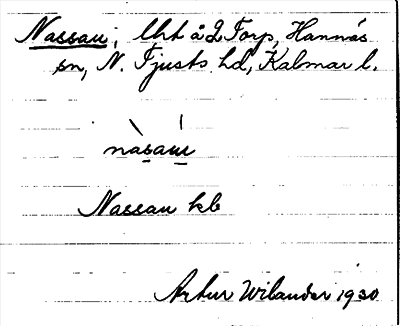 Nassau; lht å 2 Torp, Hannäs
sn, N. Tjusts hd, Kalmar l.
nàsaú
Nassau kb
Artur Wilander 1930